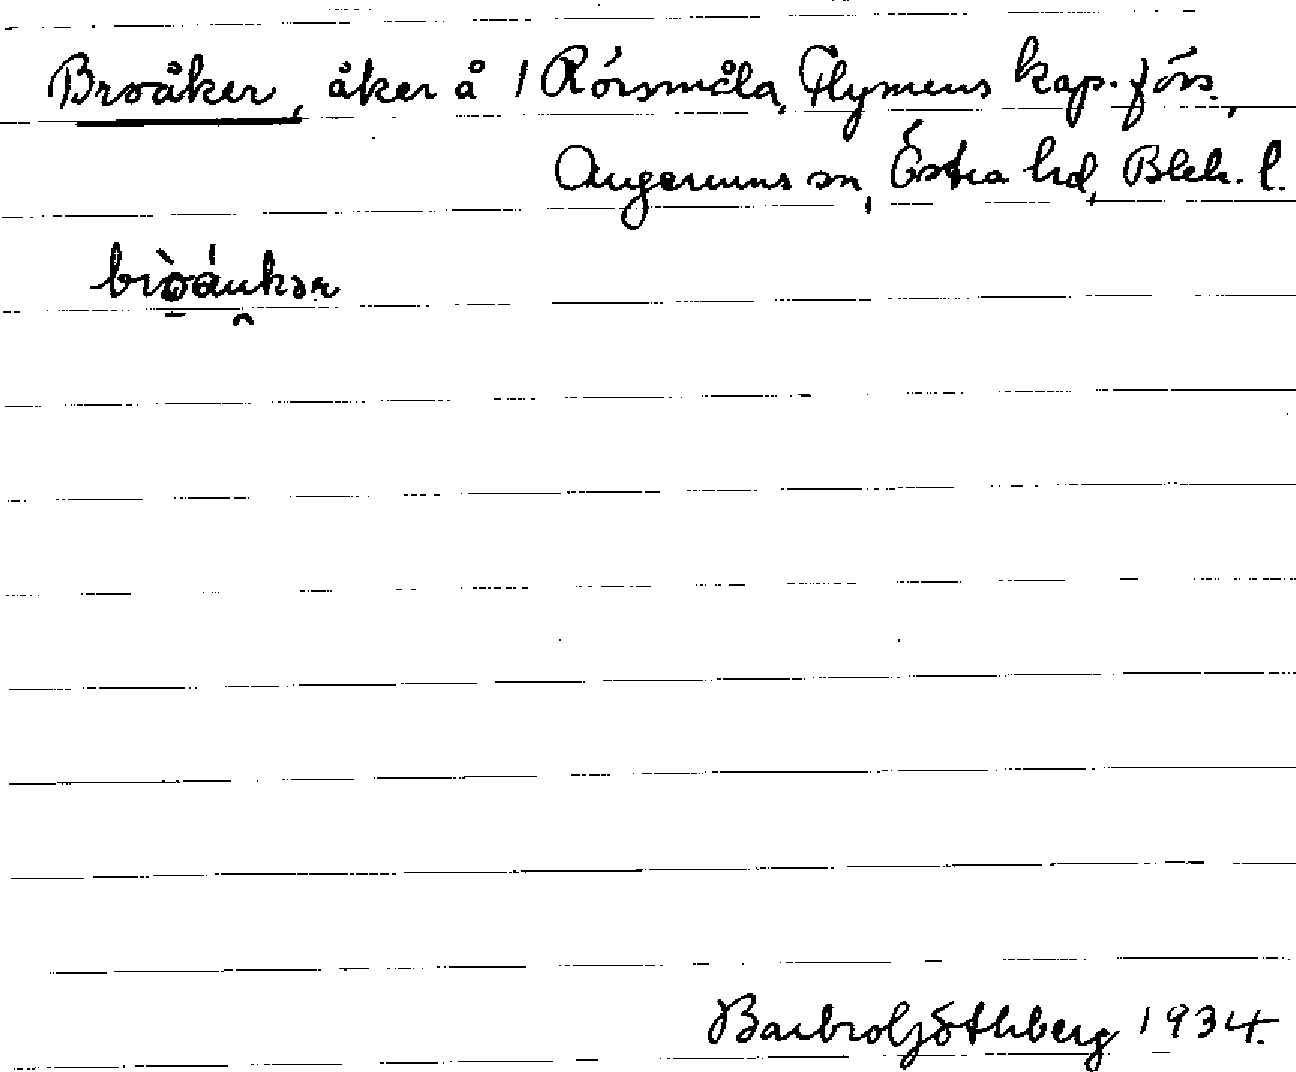 Broåker, åker å 1 Rörsmåla, Flymens kap. förs.,
Augerums sn, Östra hd, Blek. l.
bròáukər
Barbro Göthberg 1934.